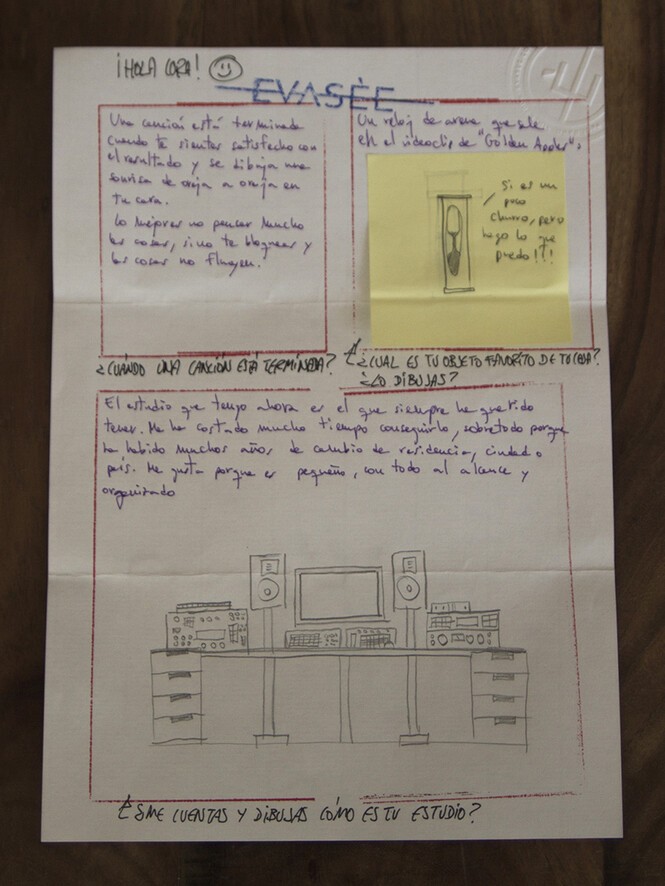 ¡HOLA CORA!
EVASÉE
Una canción está terminada
cuando te sientes satisfecho con
el resultado y se dibuja una
sonrisa de oreja a oreja en
tu cara.
Lo mejor es no pensar mucho
las cosas, sino te bloqueas y
las cosas no fluyen.
¿CUÁNDO UNA CANCIÓN ESTÁ TERMINADA?
Un reloj de arena que sale
en el videoclip de "Golden Apples".
Si es un
poco
churro, pero
hago lo que
puedo!!!
¿CUAL ES TU OBJETO FAVORITO DE TU CASA?
¿LO DIBUJAS?
El estudio que tengo ahora es el que siempre he querido
tener. Me ha costado mucho tiempo conseguirlo, sobretodo porque
ha habido muchos años de cambio de residencia, ciudad o
país. Me gusta porque es pequeño, con todo al alcance y
organizado
¿ME CUENTAS Y DIBUJAS CÓMO ES TU ESTUDIO?